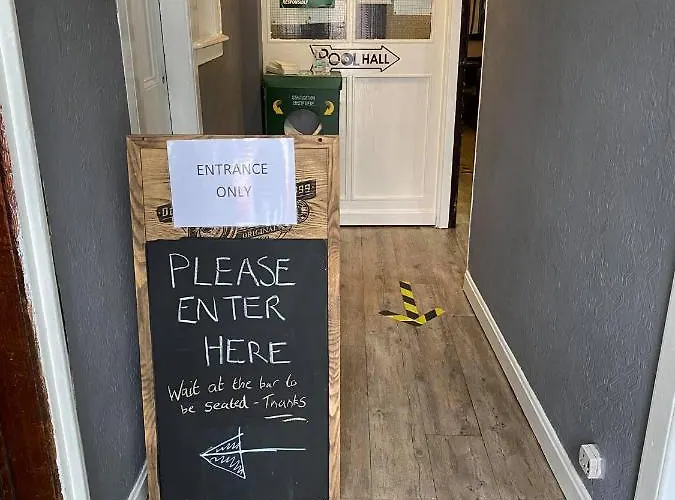 POOL HALL
ENTRANCE
ONLY
ORIGINAL
PLEASE
ENTER
HERE
Wait at the bar to
be seated - Thanks